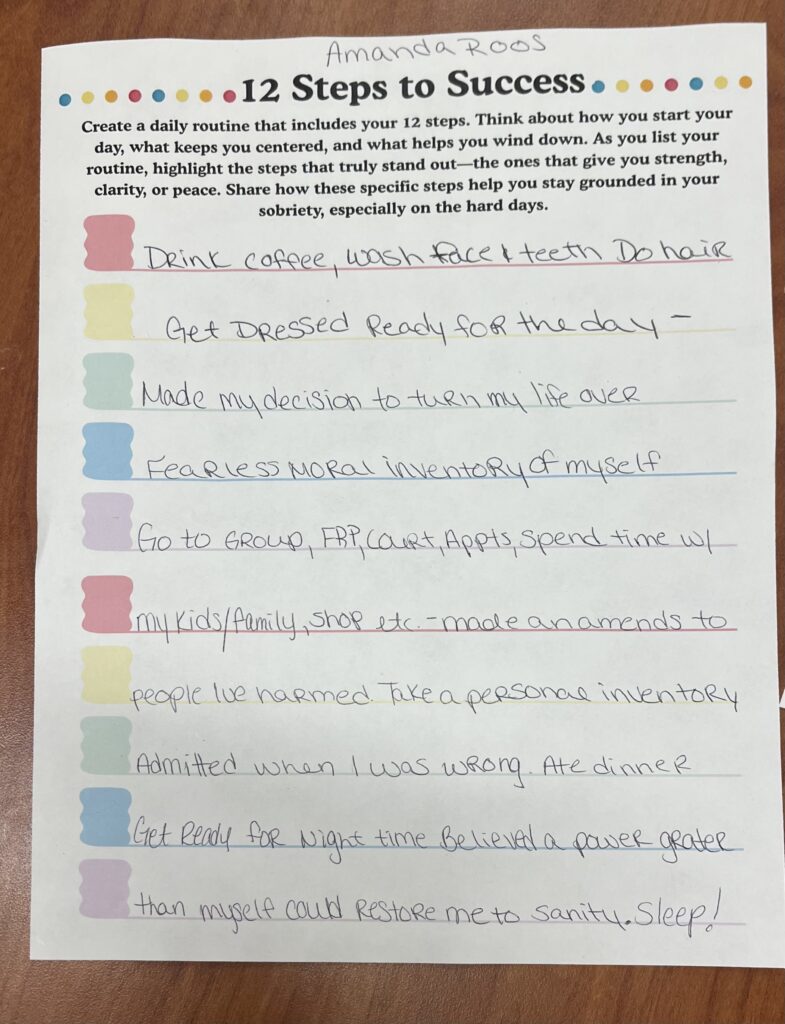 Amanda Roos
12 Steps to Success
Create a daily routine that includes your 12 steps. Think about how you start your
day, what keeps you centered, and what helps you wind down. As you list your
routine, highlight the steps that truly stand out—the ones that give you strength,
clarity, or peace. Share how these specific steps help you stay grounded in your
sobriety, especially on the hard days.
Drink coffee, wash face & teeth Do hair
Get DRessed Ready for the day -
Made my decision to turn my life over
Fearless moral inventory of myself
Go to Group, FRP, Court, Appts, Spend time w/
my kids/family, shop etc. - made an amends to
people Ive harmed. Take a personal inventory
Admitted when I was wrong. Ate dinner
Get Ready for Night time Believed a power grater
than myself could Restore me to sanity. Sleep!